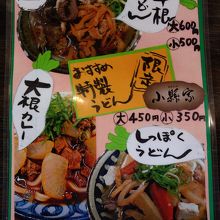 大根
どん
大600円
小500円
限定
おすすめ
特製
うどん
小縣家
大450円 小350円
大根カレー
しっぽく
うどん